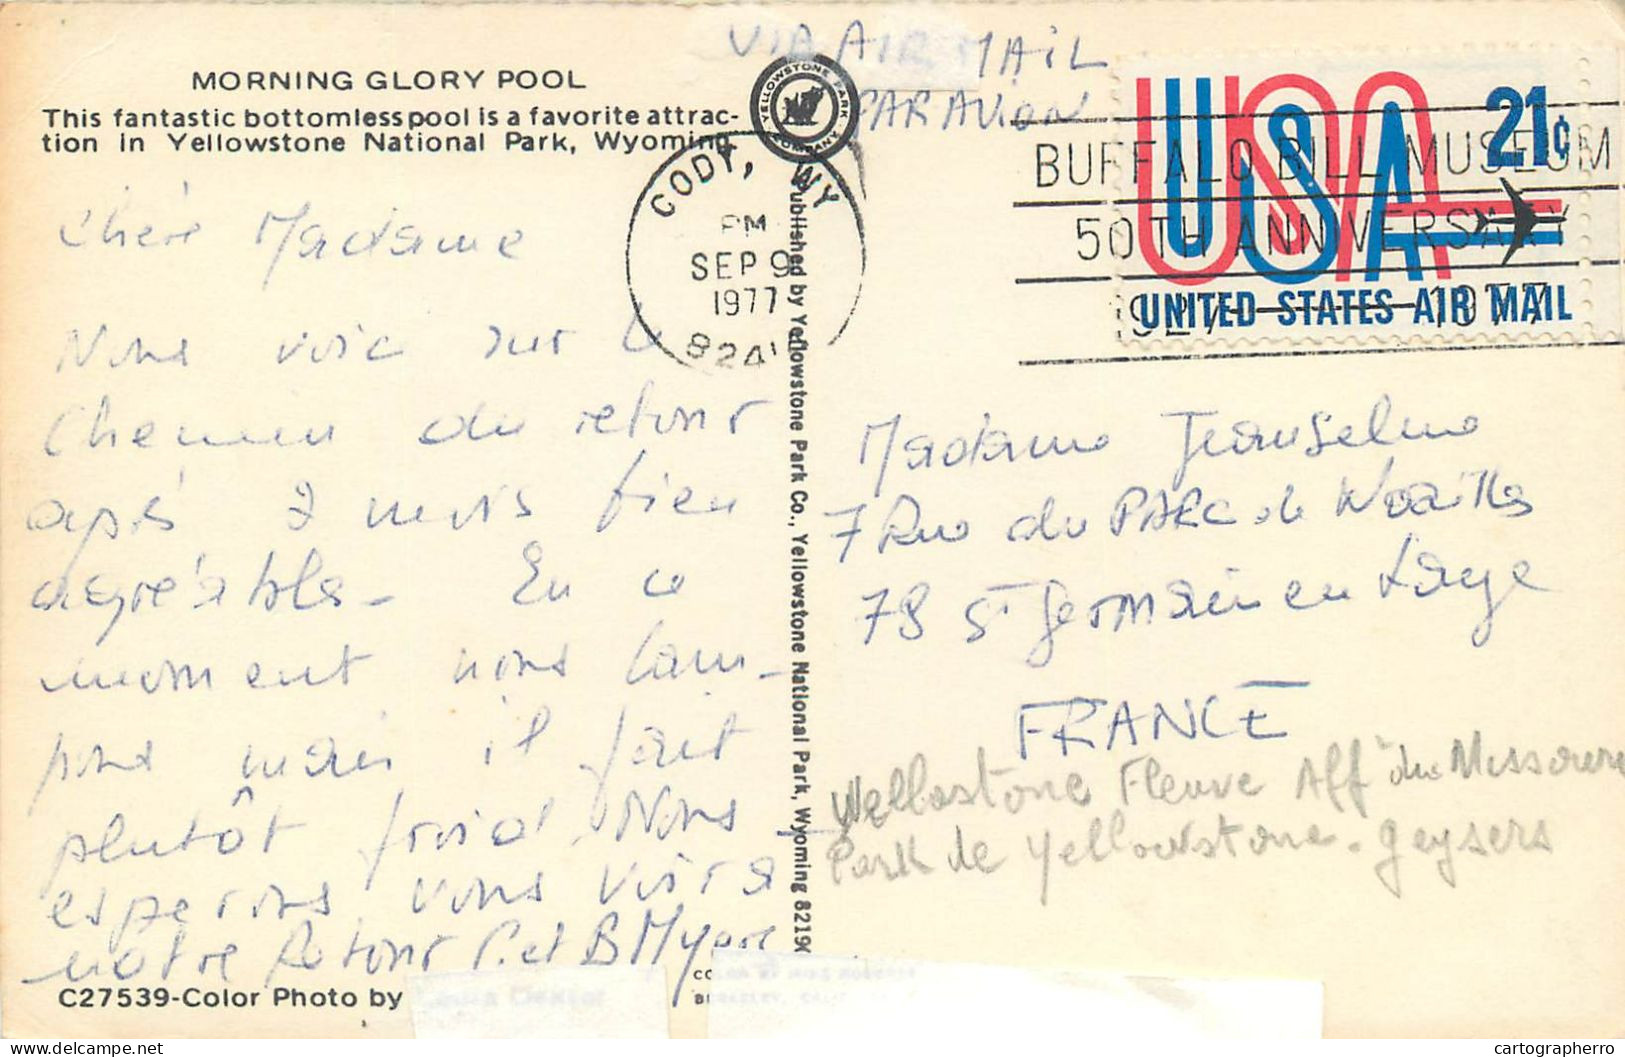 MORNING GLORY POOL
This fantastic bottomless pool is a favorite attrac-
tion in Yellowstone National Park, Wyoming.
VIA AIR MAIL
PAR AVION
YELLOWSTONE PARK COMPANY
CODY, WY
PM
SEP 9
1977
824
BUFFALO BILL MUSEUM
50TH ANNIVERSARY
1927 - 1977
USA 21¢
UNITED STATES AIR MAIL
Chère Madame
Nous voici sur le
chemin du retour
après 2 mois bien
agréables - En ce
moment nous cam-
pons mais il fait
plutôt froid. Nous
espérons vous voir a
notre Retour P. et B Myare
Published by Yellowstone Park Co., Yellowstone National Park, Wyoming 8219
Madame Jeanselme
7 Rue du PARC de Noailles
78 St Germain en Laye
FRANCE
Yellostone Fleuve Aff t du Missouri
Park de Yellowstone - geysers
C27539-Color Photo by
cartographerro